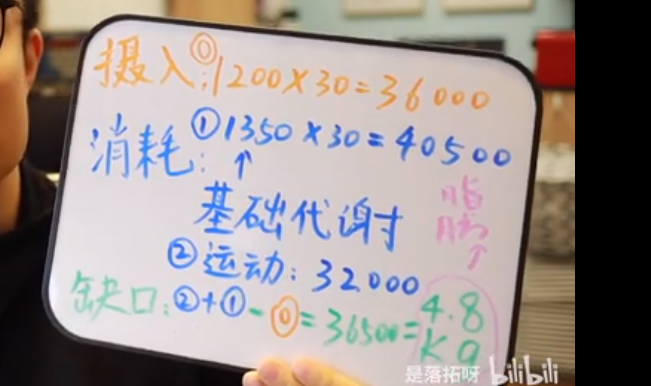 摄入:⓪1200×30=36000
消耗:①1350×30=40500
↑
基础代谢
脂
肪
↑
②运动:32000
缺口:②+①-⓪=36500=4.8
Kg
是落拓呀 bilibili